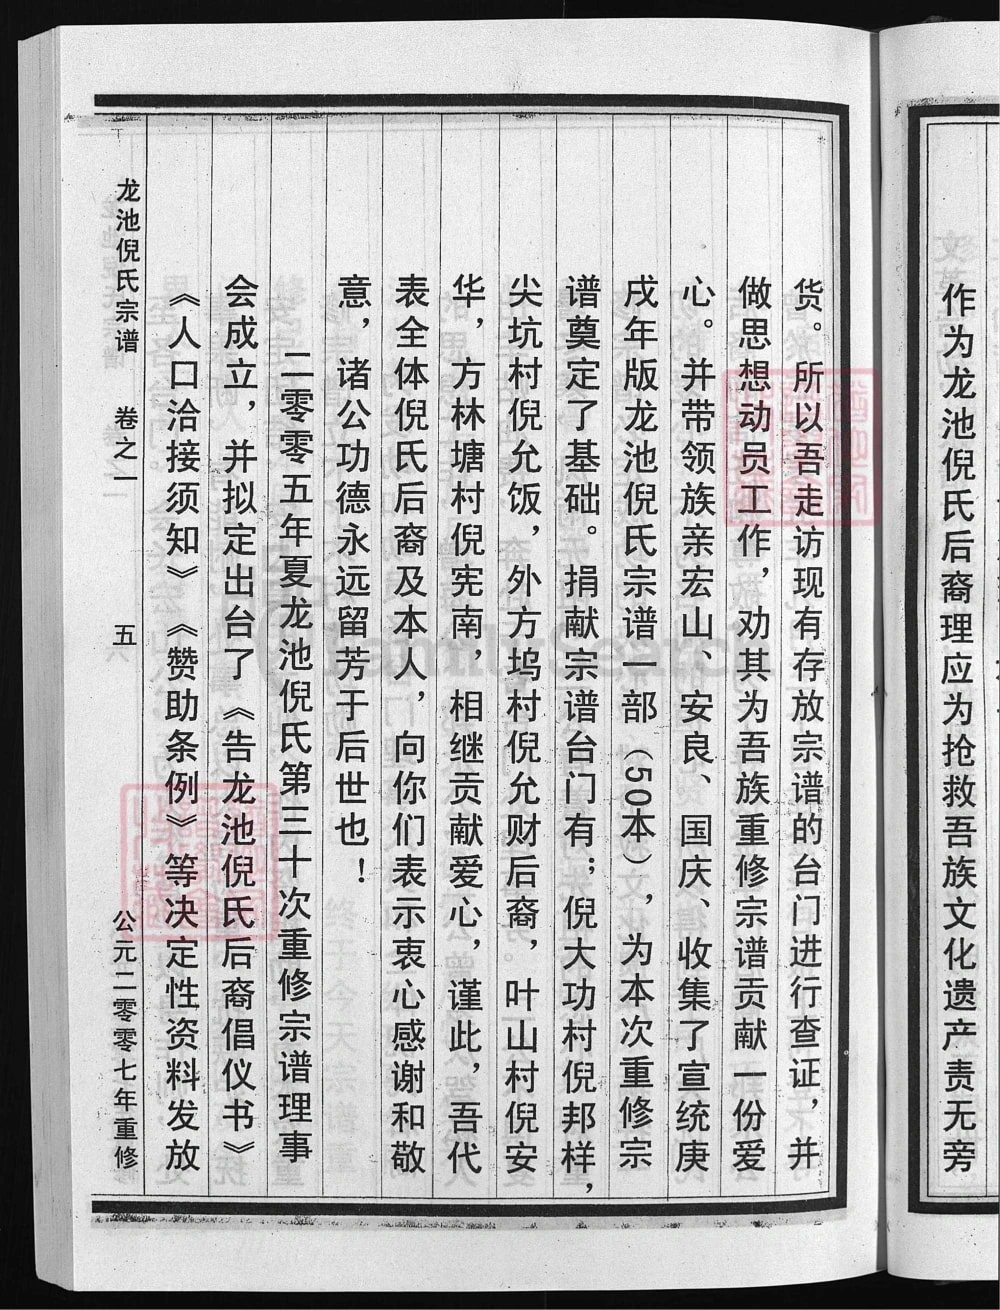 作为龙池倪氏后裔理应为抢救吾族文化遗产责无旁
货。所以吾走访现有存放宗谱的台门进行查证，并
做思想动员工作，劝其为吾族重修宗谱贡献一份爱
心。并带领族亲宏山、安良、国庆、收集了宣统庚
戌年版龙池倪氏宗谱一部（50本），为本次重修宗
谱奠定了基础。捐献宗谱台门有；倪大功村倪邦样，
尖坑村倪允饭，外方坞村倪允财后裔，叶山村倪安
华，方林塘村倪宪南，相继贡献爱心，谨此，吾代
表全体倪氏后裔及本人，向你们表示衷心感谢和敬
意，诸公功德永远留芳于后世也！
二零零五年夏龙池倪氏第三十次重修宗谱理事
会成立，并拟定出台了《告龙池倪氏后裔倡仪书》
《人口洽接须知》《赞助条例》等决定性资料发放
龙池倪氏宗谱 卷之一 五 公元二零零七年重修
FamilySearch